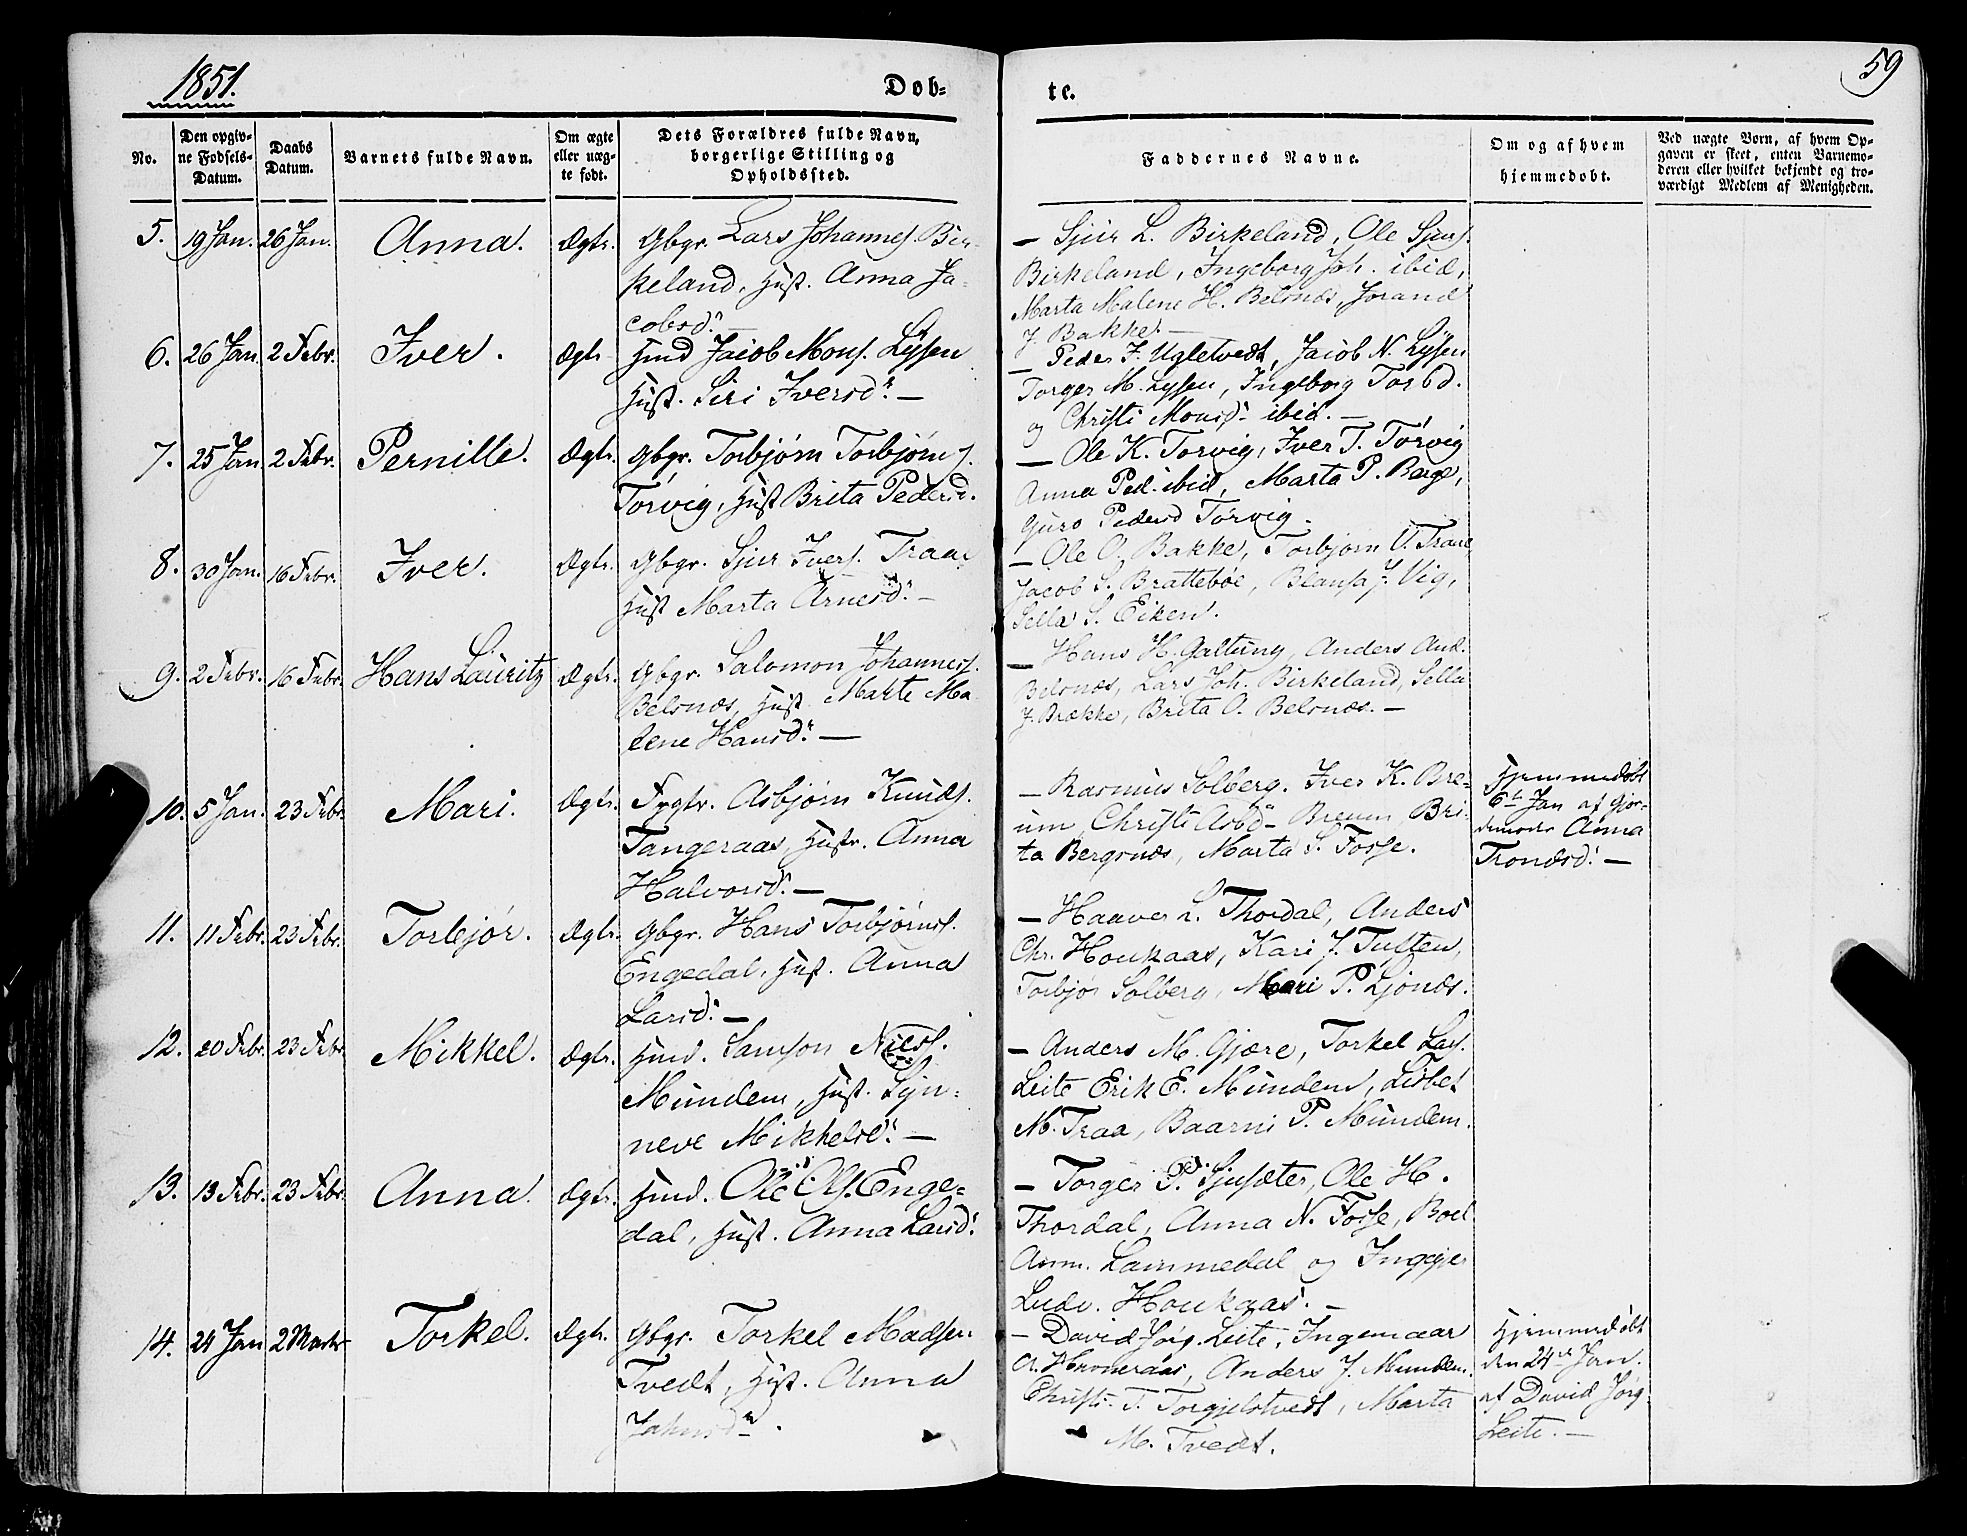 1851.
Døb-
te.
59
No.
Den opgiv-
ne Fødsels-
Datum.
Daabs
Datum.
Barnets fulde Navn.
Om ægte
eller uæg-
te født.
Dets Forældres fulde Navn,
borgerlige Stilling og
Opholdssted.
Faddernes Navne.
Om og af hvem
hjemmedøbt.
Ved uægte Børn, af hvem Op-
gaven er skeet, enten Barnemo-
deren eller hvilket bekjendt og tro-
værdigt Medlem af Menigheden.
5. 19 Jan. 26 Jan. Anna. Ægte. Gbgr. Lars Johannes. Bir-
keland, Hust. Anna Ja-
cobsd:
— Sjur L. Birkeland, Ole Sjurs.
Birkeland, Ingeborg Joh. ibid,
Marta Malene H. Belsnes, Jorand
J. Bakke. —
6. 26 Jan. 2 Febr. Iver. Ægte. Hmd Jacob Mons. Lÿssen
Hust. Siri Iversd: —
— Peder J. Ugletvedt, Jacob N. Lÿssen
Torger M. Lyssen, Ingeborg Torbd.
og Christi Monsd: ibid. —
7. 25 Jan 2 Febr. Pernille. Ægte. Gbgr. Torbjørn Torbjørns.
Torvig, Hust Brita Pedersd.
— Ole K. Torvig, Iver T. Torvig
Anna Ped. ibid, Marta P. Berge,
Guro Pedersd Torvig.
8. 30 Jan. 16 Febr. Iver. Ægte. Gbgr. Sjur Ivers. Traae
Hust Marta Arnesd: —
— Ole O. Bakke, Torbjørn U. Traae
Jacob S. Brattebøe, Blansa J. Vig,
Sella S. Eiken.
9. 2 Febr. 16 Febr. Hans Lauritz Ægte. Gbgr. Salomon Johanness.
Belsnæs, Hust. Marte Ma
lene Hansd: —
— Hans H. Galtung, Anders And.
Belsnæs, Lars Joh. Birkeland, Sella
J. Brække, Brita O. Belsnæs. —
10. 5 Jan. 23 Febr. Mari. Ægte. Asbjørn Knuds.
Tangeraas, Hustr. Anna
Halvorsd: —
— Rasmus Solberg. Iver K. Bre-
um, Christi Asbd — Breum, Bri-
ta Bergsnæs, Marta S. Fosse.
Hjemmedøbt
6te Jan af Gjor-
demoder Anna
Trondsd: —
11. 11 Febr. 23 Febr. Torbjør. Ægte. Gbgr. Hans Torbjørns.
Engedal, Hust. Anna
Larsd: —
— Haaver L. Thordal, Anders
Chr. Houkaas, Kari J. Tusten,
Torbjør Solberg, Mari P. Ljonds.
12. 20 Febr. 23 Febr. Mikkel. Ægte. Hmd. Samson Nielss.
Mundem, Hust. Syn-
neve Mikkelsd: —
— Anders M. Gjære, Torkel Lars.
Leite Erik E. Mundem, Lisbet
N. Traa, Baarni P. Mundem.
13. 13 Febr. 23 Febr. Anna. Ægte. Hmd. Ole Ols. Enge-
dal, Hust. Anna Larsd:
— Torger P. Sjusæter, Ole H.
Thordal, Anna N. Fosse, Boel
Anm. Lammedal og Inggje
Ludv. Houkaas. —
14. 24 Jan 2 Marts Torkel. Ægte. Gbgr. Torkel Madsen
Tvedt, Hust. Anna
Jahnsd:
— David Jørg. Leite, Ingemaar
A. Havneraas, Anders J. Mundem.
Christi T. Torgjelstvedt, Marta
M. Tvedt.
Hjemmedøbt
den 24de Jan.
af David Jørg.
Leite. —